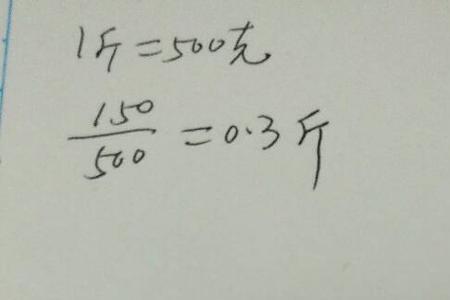 1斤=500克
150/500=0.3斤